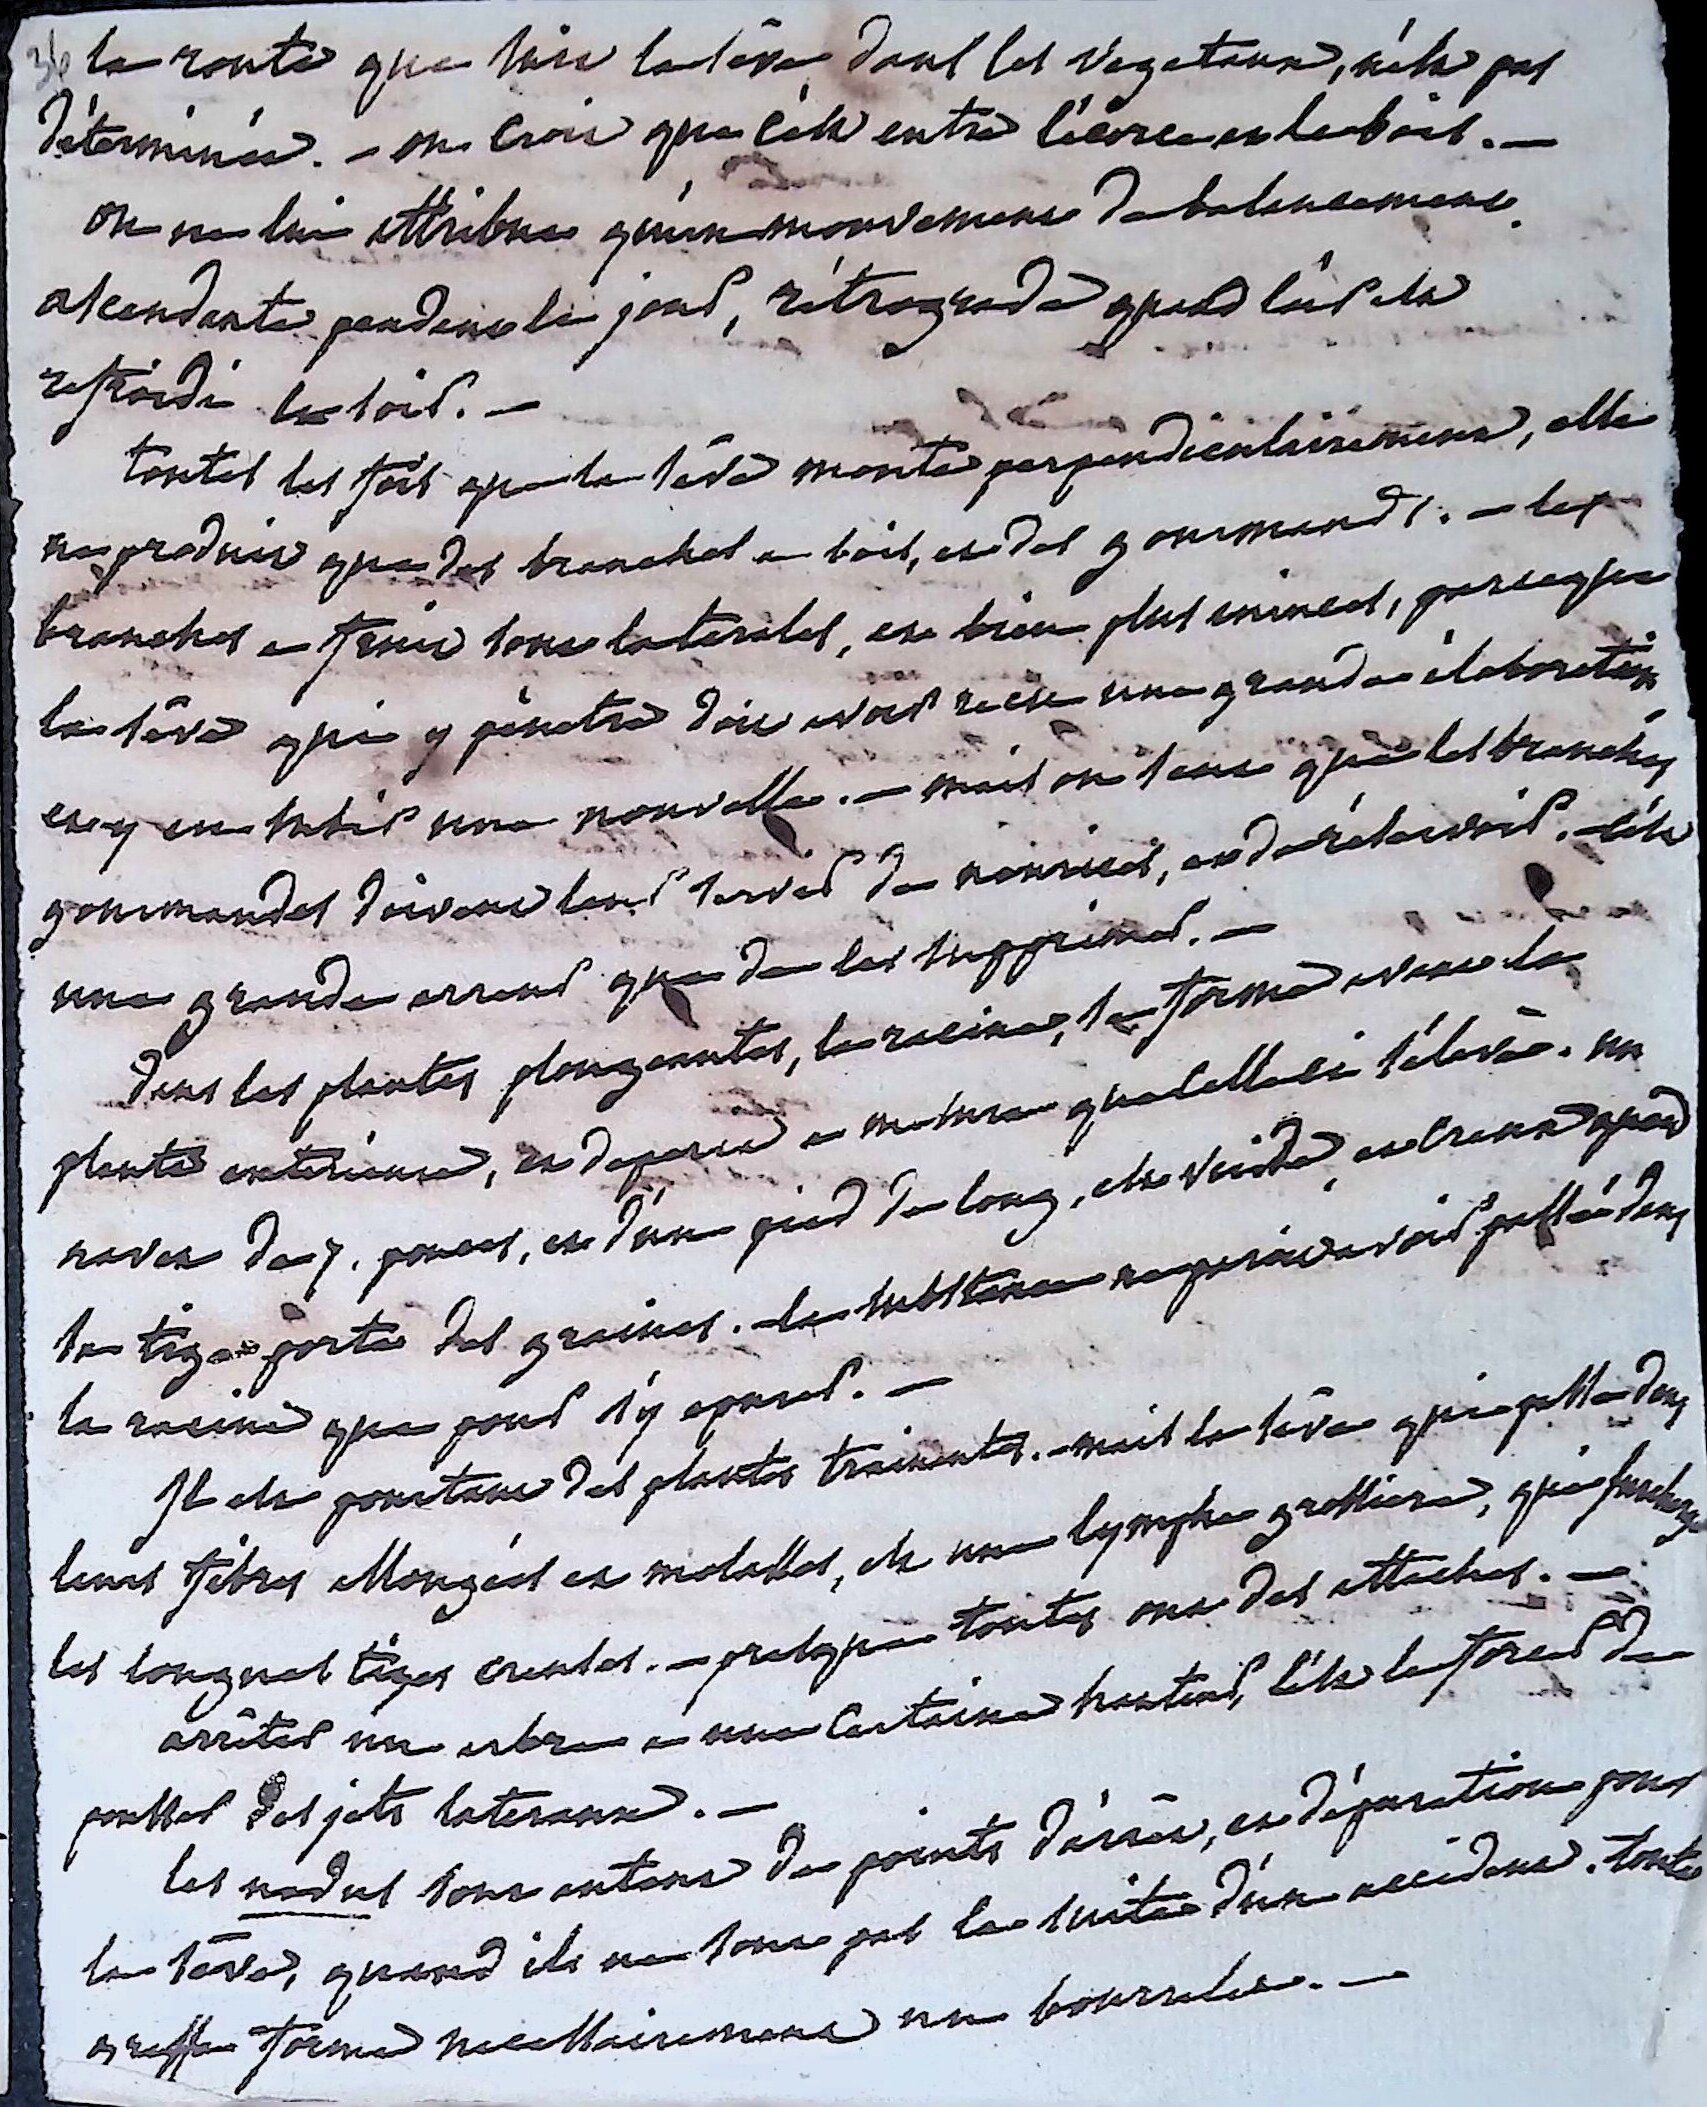 36 la route que suit la sève dans les vegetaux, n'est pas
déterminée. - on croit que c'est entre l'écorce et le bois. -
on ne lui attribue qu'un mouvement de balancement.
ascendante pendant le jour, rétrograde quand l'air est
refroidi le soir. -
toutes les fois que la sève monte perpendiculairement, elle
ne produit que des branches a bois, et des gourmands. - les
branches a fruit sont laterales, et bien plus minces, parceque
la sève qui y pénetre doit avoir recu une grande élaboration,
et y en subir une nouvelle. - mais on sent que les branches
gourmandes doivent leur servir de nourices, et de réservoir. c'est
une grande erreur que de les supprimer. -
dans les plantes plongeantes, la racine, se forme avant la
plante exterieure, et deperit a mesure que celle ci s'élève. un
navet de 7. pouces, et d'un pied de long, est vuide, et creux quand
sa tige porte des graines. la substance ne parait avoir passé dans
la racine que pour s'y epurer. -
Il est pourtant des plantes trainantes. - mais la sève qui passe dans
leurs fibres allongées et molasses, est une lymphe grossiere, qui surcharge
les longues tiges creuses. - presque toutes ont des attaches. -
arrêter un arbre a une certaine hauteur, c'est le forcer de
pousser des jets lateraux. -
les nodus sont autant de points d'arrêt, et d'épuration pour
la sève, quand ils ne sont pas la suite d'un accident. toute
greffe forme necessairement un bourrelet. -